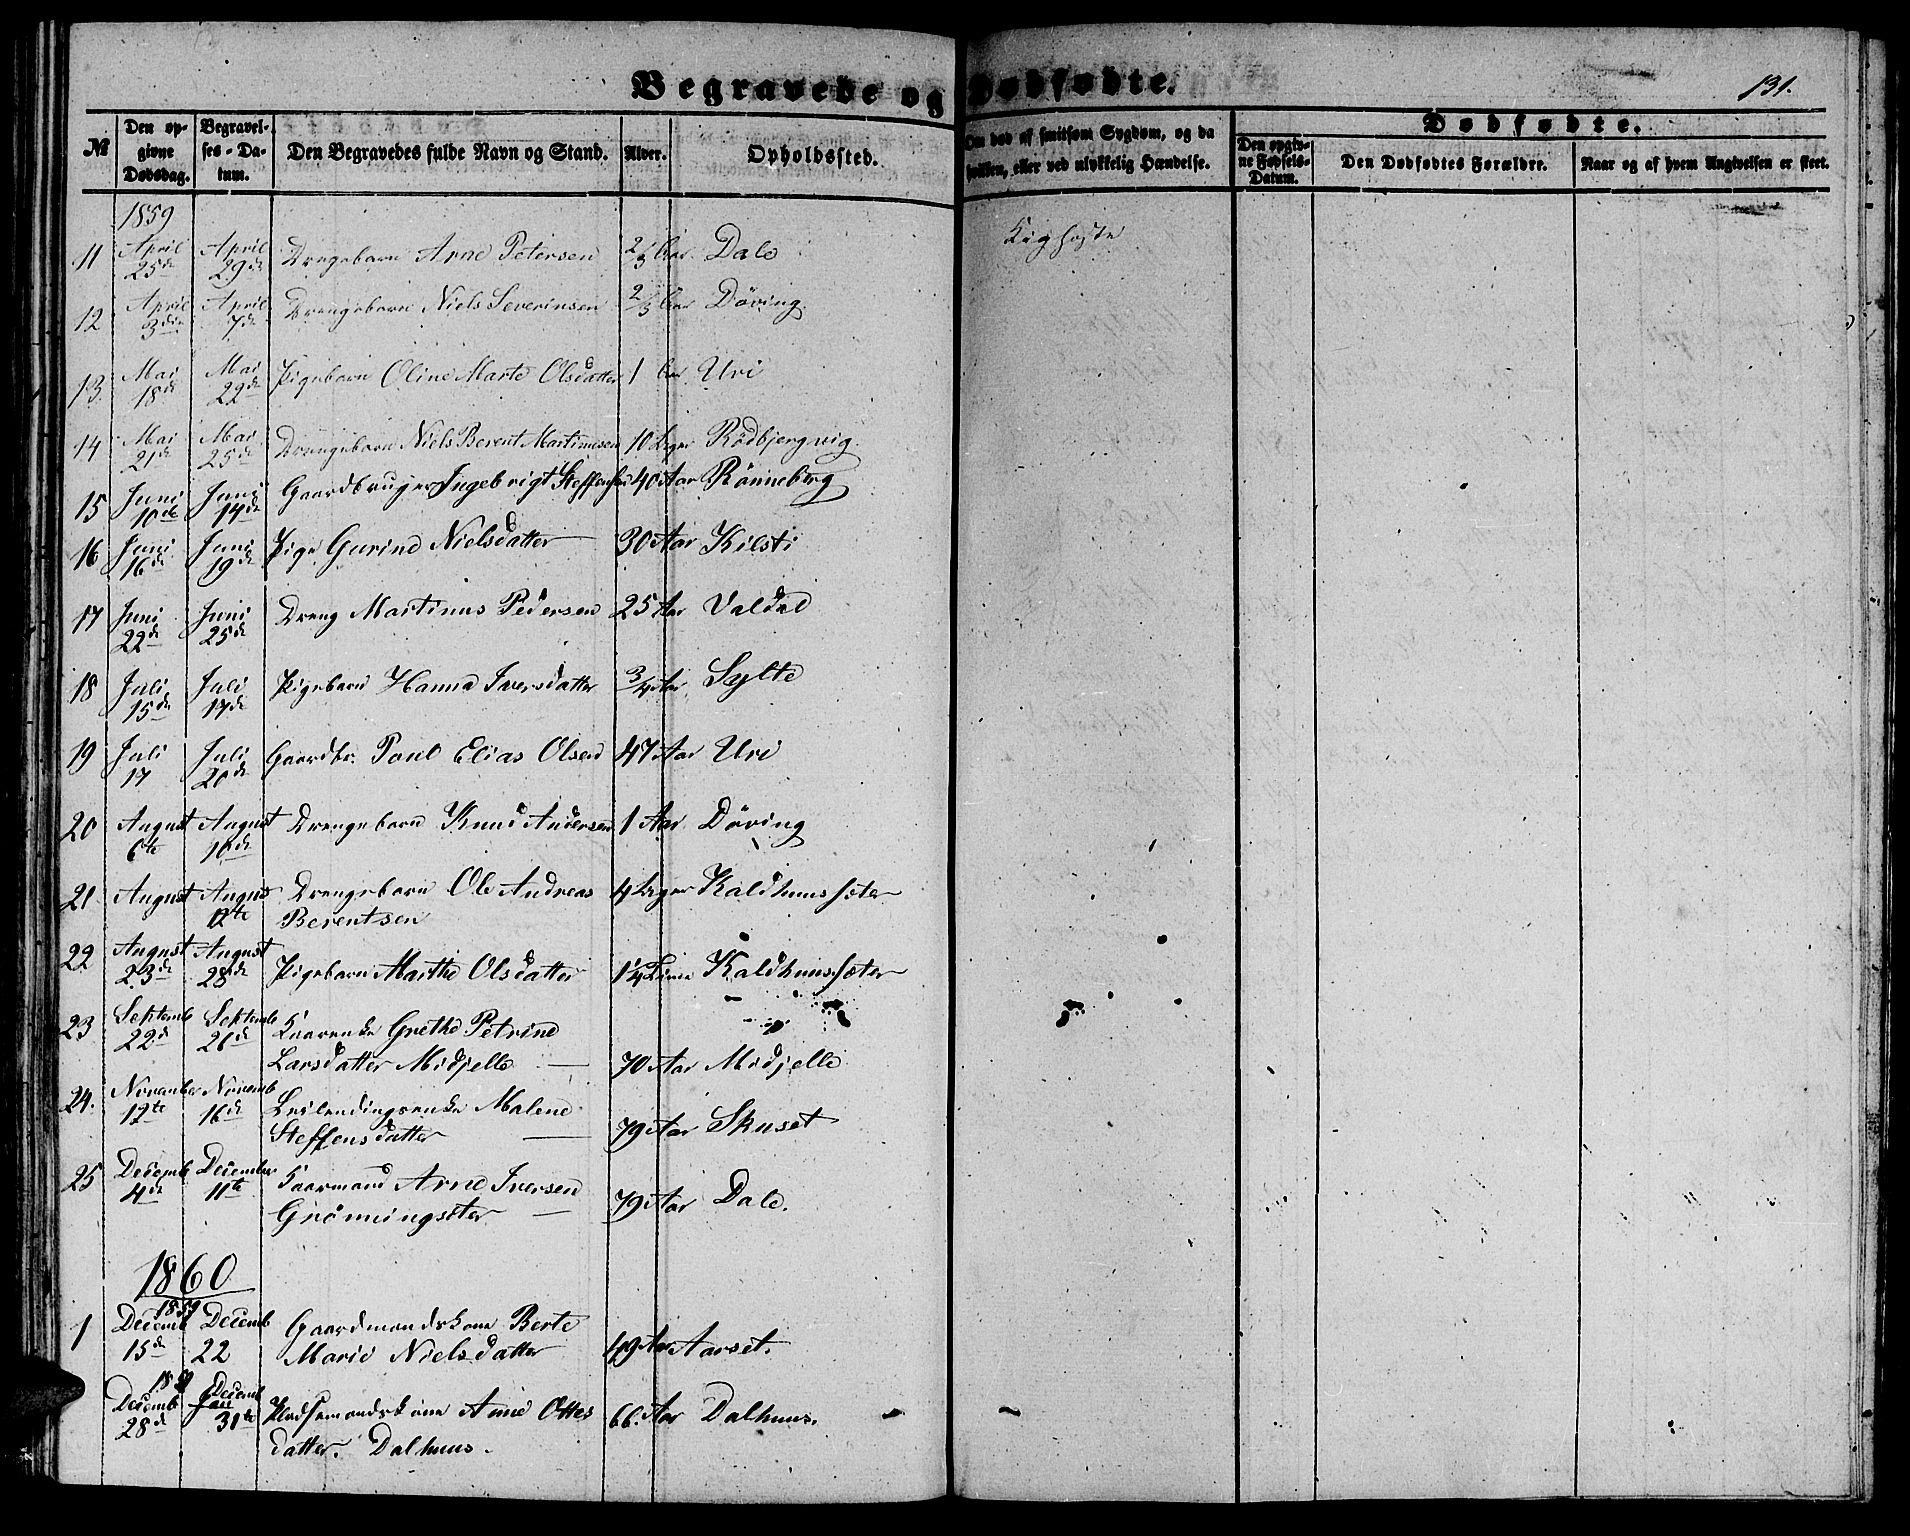 Begravede og Dødfødte.
131.
№ | Den opgivne Dødsdag. | Begravelses-Datum. | Den Begravedes fulde Navn og Stand. | Alder. | Opholdssted. | Om død af smitsom Sygdom, og da hvilken, eller ved ulykkelig Hændelse. | Dødfødte. | Den opgivne Fødsels-Datum. | Den Dødfødtes Forældre. | Naar og af hvem Angivelsen er skeet.
1859
11 April 25de April 29de Drengebarn Arne Petersen 2/3 Aar Dale Kighoste
12 April 3die April 7de Drengebarn Niels Severinsen 2/3 Aar Döving
13. Mai 18de Mai 22de Pigebarn Oline Marte Olsdatter 1 Aar Uri
14 Mai 21de Mai 25de Drengebarn Niels Berent Martinusen 10 Uger Rödbjergvig
15 Juni 10de Juni 14de Gaardbruger Ingebrigt Steffensen 40 Aar Rönneberg
16 Juni 16de Juni 19de Pige Gurine Nielsdatter 30 Aar Kilsti
17 Juni 22de Juni 25de Dreng Martinus Pedersen 25 Aar Valdal
18 Juli 15de Juli 17de Pigebarn Hanna Iversdatter 3/4 Aar Sylte
19 Juli 17 Juli 20de Gaardbr. Poul Elias Olsen 47 Aar Uri
20 August 6te August 10de Drengebarn Knud Andersen 1 Aar Döving
21 August August 12te Drengebarn Ole Andreas 4 Uger Kaldhussæter
Berentsen
22 August 23de August 28de Pigebarn Marthe Olsdatter 14 Kaldhussæter
23 Septemb 22de Septemb 26de Grethe Petrine
Larsdatter Midjelle 70 Aar Midjelle
24. November 12te Novemb 16de Malene
Steffensdatter 79 Aar Skuset
25 Decemb 4de December 11te Arne Iversen
Grönningsæter 79 Aar Dale.
1860
1 1859 Decemb 15de Decemb 22 Gaardmandskone Berte
Marie Nielsdatter 49 Aar Aarset.
Decemb 28de Decemb 31te Pladsemandskone Anne Ottes 66. Aar Dalhuus.
datter. Dalhuus.